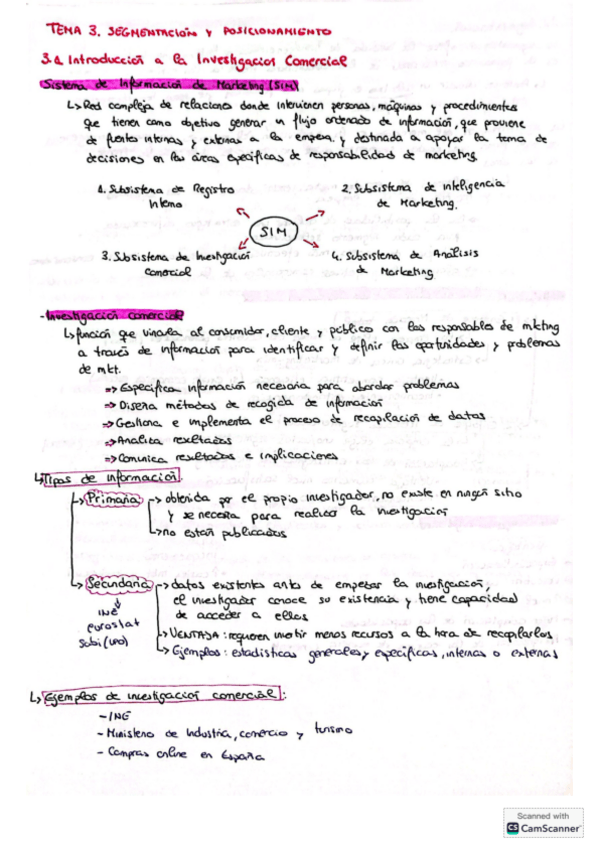 TEMA 3. SEGMENTACIÓN Y POSICIONAMIENTO
3.1 Introducción a la Investigacion Comercial
Sistema de Información de Marketing (SIM)
↳ Red compleja de relaciones donde intervienen personas, máquinas y procedimientos
que tienen como objetivo generar un flujo ordenado de información, que proviene
de fuentes internas y externas a la empresa y destinada a apoyar la toma de
decisiones en las áreas específicas de responsabilidad de marketing.
1. Subsistema de Registro
Interno
2. Subsistema de inteligencia
de Marketing.
SIM
3. Subsistema de Investigación
Comercial
4. Subsistema de Análisis
de Marketing
- Investigación comercial
↳ función que vincula al consumidor, cliente y público con los responsables de mkting
a través de información para identificar y definir las oportunidades y problemas
de mkt.
⇒ Especifica información necesaria para abordar problemas
⇒ Diseña métodos de recogida de información
⇒ Gestiona e implementa el proceso de recopilación de datos
⇒ Analiza resultados
⇒ Comunica resultados e implicaciones
↳ Tipos de información
↳ Primaria → obtenida por el propio investigador, no existe en ningún sitio
y se necesita para realizar la investigación
↳ no están publicados
↳ Secundaria → datos existentes antes de empezar la investigación,
el investigador conoce su existencia y tiene capacidad
de acceder a ellos.
INE
eurostat
Sabi (UPO)
↳ VENTAJA: requieren invertir menos recursos a la hora de recopilarlos
↳ Ejemplos: estadísticas generales y específicas, internas o externas
↳ Ejemplos de investigación comercial:
- INE
- Ministerio de Industria, comercio y turismo
- Compras online en España
Scanned with
CS CamScanner